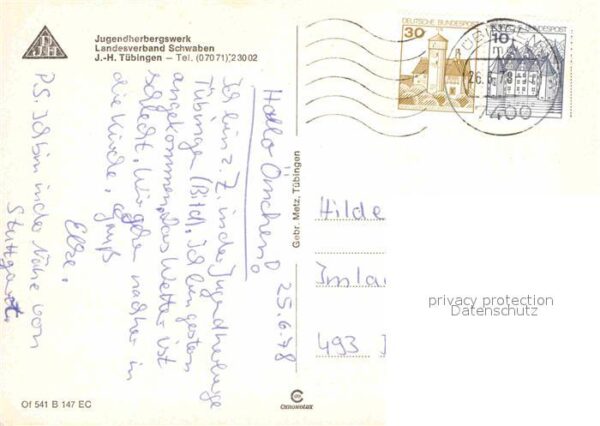 Jugendherbergswerk
Landesverband Schwaben
J.-H. Tübingen – Tel. (07071) 23002
DEUTSCHE BUNDESPOST
30
DEUTSCHE BUNDESPOST
10
TÜBINGEN
26.6.78
7400
Hallo Omchen!
25.6.78
Ich bin z. Z. in der Jugendherberge
Tübingen (Bild). Ich bin gestern
angekommen, das Wetter ist
schlecht. Wir gehen nachher in
die Kirche.
P.S. Ich bin in der Nähe von
Stuttgart.
Gebr. Metz, Tübingen
Hilde
Imla
493
privacy protection
Datenschutz
Of 541 B 147 EC
CHROMOLUX